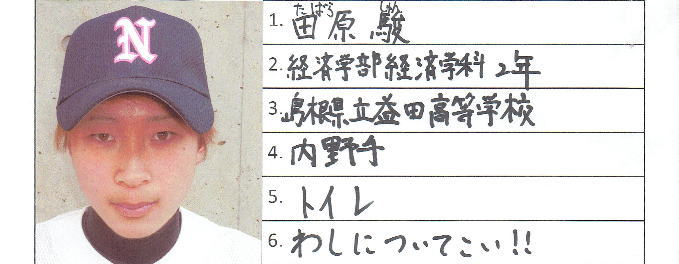 N
たばら しゅん
1. 田原 駿
2. 経済学部経済学科 2年
3. 島根県立益田高等学校
4. 内野手
5. トイレ
6. わしについてこい!!